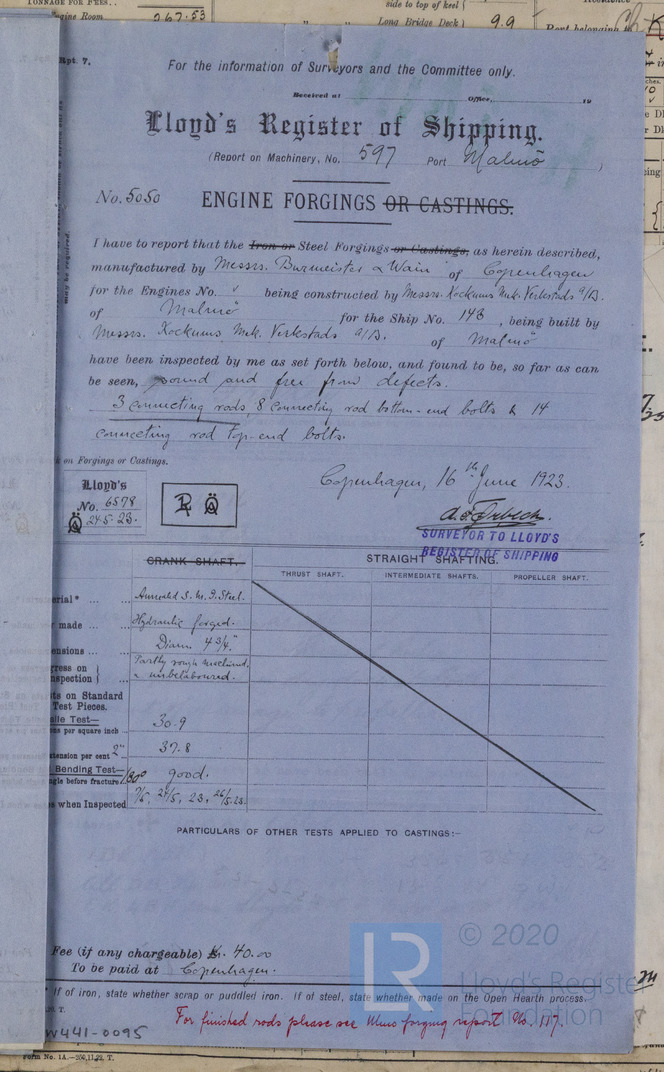 TONNAGE FOR FEES..
Engine Room 267.53
side to top of keel
Long Bridge Deck 9.9
Port belonging
Rpt. 7.
For the information of Surveyors and the Committee only.
Received at Office, 19
Lloyd's Register of Shipping.
(Report on Machinery, No. 597 Port Malmö )
No. 5050 ENGINE FORGINGS OR CASTINGS.
I have to report that the Iron or Steel Forgings or Castings, as herein described,
manufactured by Messrs. Burmeister & Wain of Copenhagen
for the Engines No. being constructed by Messrs. Kockums Mek. Verkstads A/B.
of Malmö for the Ship No. 143, being built by
Messrs. Kockums Mek. Verkstads A/B. of Malmö
have been inspected by me as set forth below, and found to be, so far as can
be seen, sound and free from defects.
3 connecting rods, 8 connecting rod bottom-end bolts & 14
connecting rod top-end bolts.
on Forgings or Castings.
Copenhagen, 16th June 1923.
Lloyd's
No. 6578
24-5-23.
SURVEYOR TO LLOYD'S
REGISTER OF SHIPPING
CRANK SHAFT. STRAIGHT SHAFTING.
THRUST SHAFT. INTERMEDIATE SHAFTS. PROPELLER SHAFT.
erial* ... ... Annealed S. M. I. Steel.
made ... ... Hydraulic forged.
ensions ... ... Diam 4 3/4"
gress on
nspection ... Partly rough machined
& unbelaboured.
ts on Standard
Test Pieces.
ile Test—
ns per square inch ... 30.9
tension per cent 2" 37.8
Bending Test—
gle before fracture 180° good.
s when Inspected 7/5, 24/5, 23, 26/5.23
PARTICULARS OF OTHER TESTS APPLIED TO CASTINGS:—
Fee (if any chargeable) Kr. 40.00
To be paid at Copenhagen.
* If of iron, state whether scrap or puddled iron. If of steel, state whether made on the Open Hearth process.
For finished rods please see Ulmo forging report No. 117.
© 2020
Lloyd's Register
Foundation
W441-0095
Form No. 1A.—250,11,22. T.